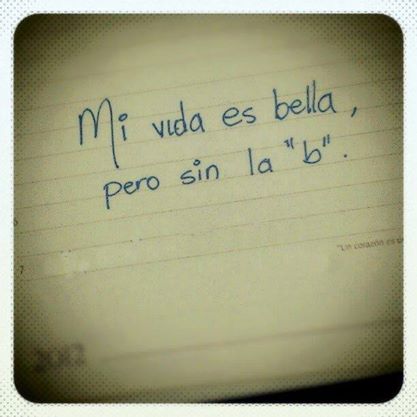 Mi vida es bella,
pero sin la "b".
6
"Un corazón es u
7
2012